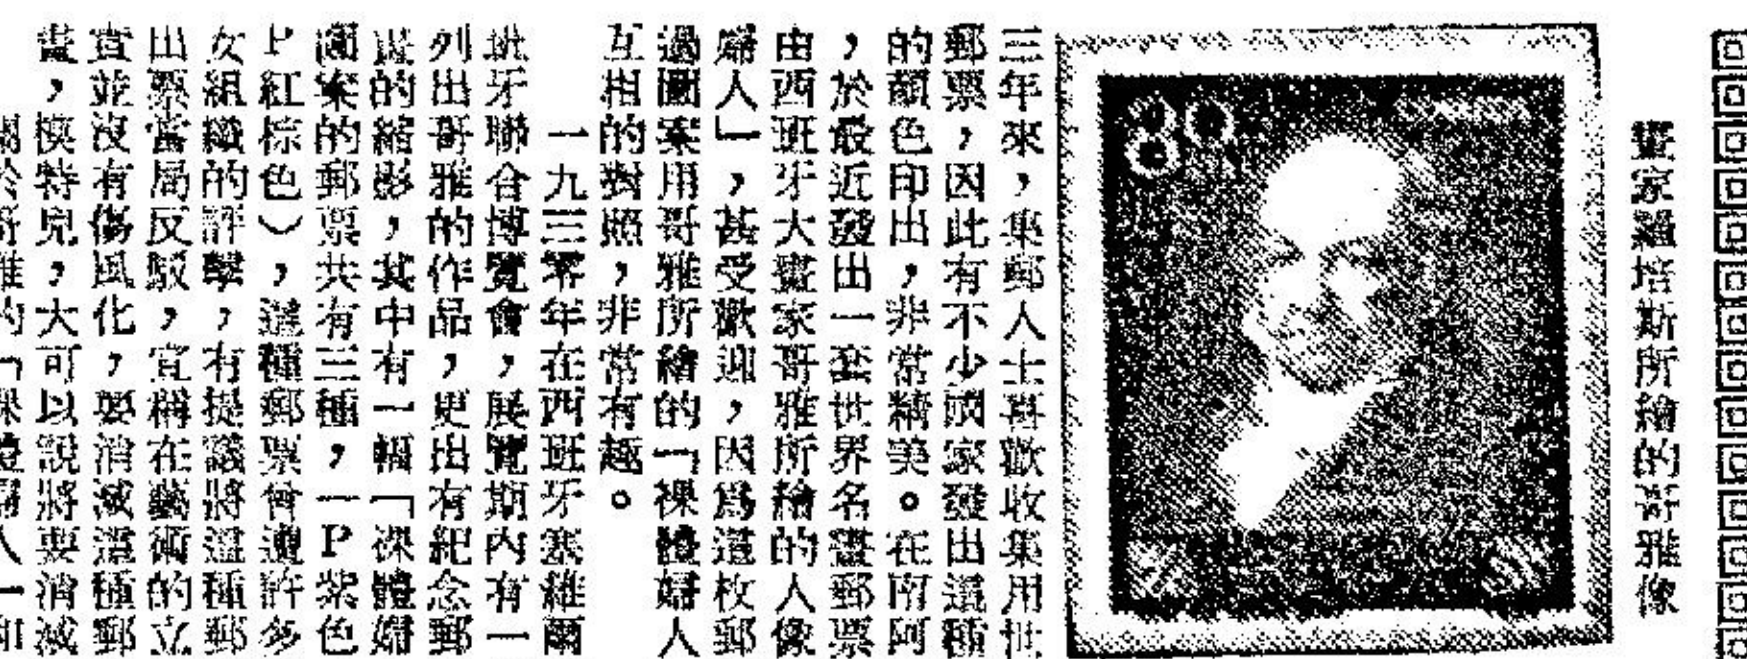 畫家羅培斯所繪的哥雅像
三年來，集郵人士喜歡收集用世
郵票，因此有不少國家發出這種
的顏色印出，非常精美。在南阿
，於最近發出一套世界名畫郵票
由西班牙大畫家哥雅所繪的人像
婦人」，甚受歡迎，因爲這枚郵
過圖案用哥雅所繪的「裸體婦人
互相的對照，非常有趣。
一九三零年在西班牙塞維爾
班牙聯合博覽會，展覽期內有一
列出哥雅的作品，更出有紀念郵
畫的縮影，其中有一幅「裸體婦
圖案的郵票共有三種，一P紫色
P紅棕色），這種郵票會遭許多
女組織的評擊，有提議將這種郵
出票當局反駁，宣稱在藝術的立
賣並沒有傷風化，要消滅這種郵
畫，模特兒，大可以說將要消滅